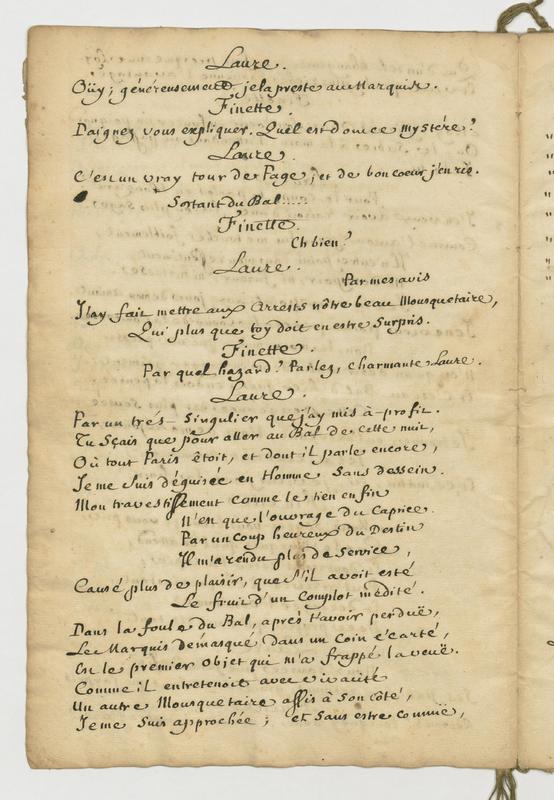 Laure.
Oüy; généreusement je la preste au Marquis.
Finette.
Daignez vous expliquer. Quel est donc ce mystére?
Laure.
C'est un vray tour de Page; et de bon coeur j'en ris.
Sortant du Bal.....
Finette.
Eh bien?
Laure.
Par mes avis
J'ay fait mettre aux Arrests nôtre beau Mousquetaire,
Qui plus que toy doit en estre surpris.
Finette.
Par quel hazard? Parlez, charmante Laure.
Laure.
Par un trés-singulier que j'ay mis à profit.
Tu sçais que pour aller au Bal de cette nuit,
Où tout Paris étoit, et dont il parle encore,
Je me suis déguisée en Homme sans dessein.
Mon travestissement comme le tien enfin
N'est que l'ouvrage du Caprice.
Par un coup heureux du Destin
Il m'a rendu plus de service,
Causé plus de plaisir, que s'il avoit esté
Le fruit d'un Complot médité.
Dans la foule du Bal, aprés t'avoir perduë,
Le Marquis démasqué dans un Coin écarté,
Est le premier objet qui m'a frappé la veuë.
Comme il entretenoit avec vivacité
Un autre Mousquetaire assis à son côté,
Je me suis approchée; et sans estre connuë,